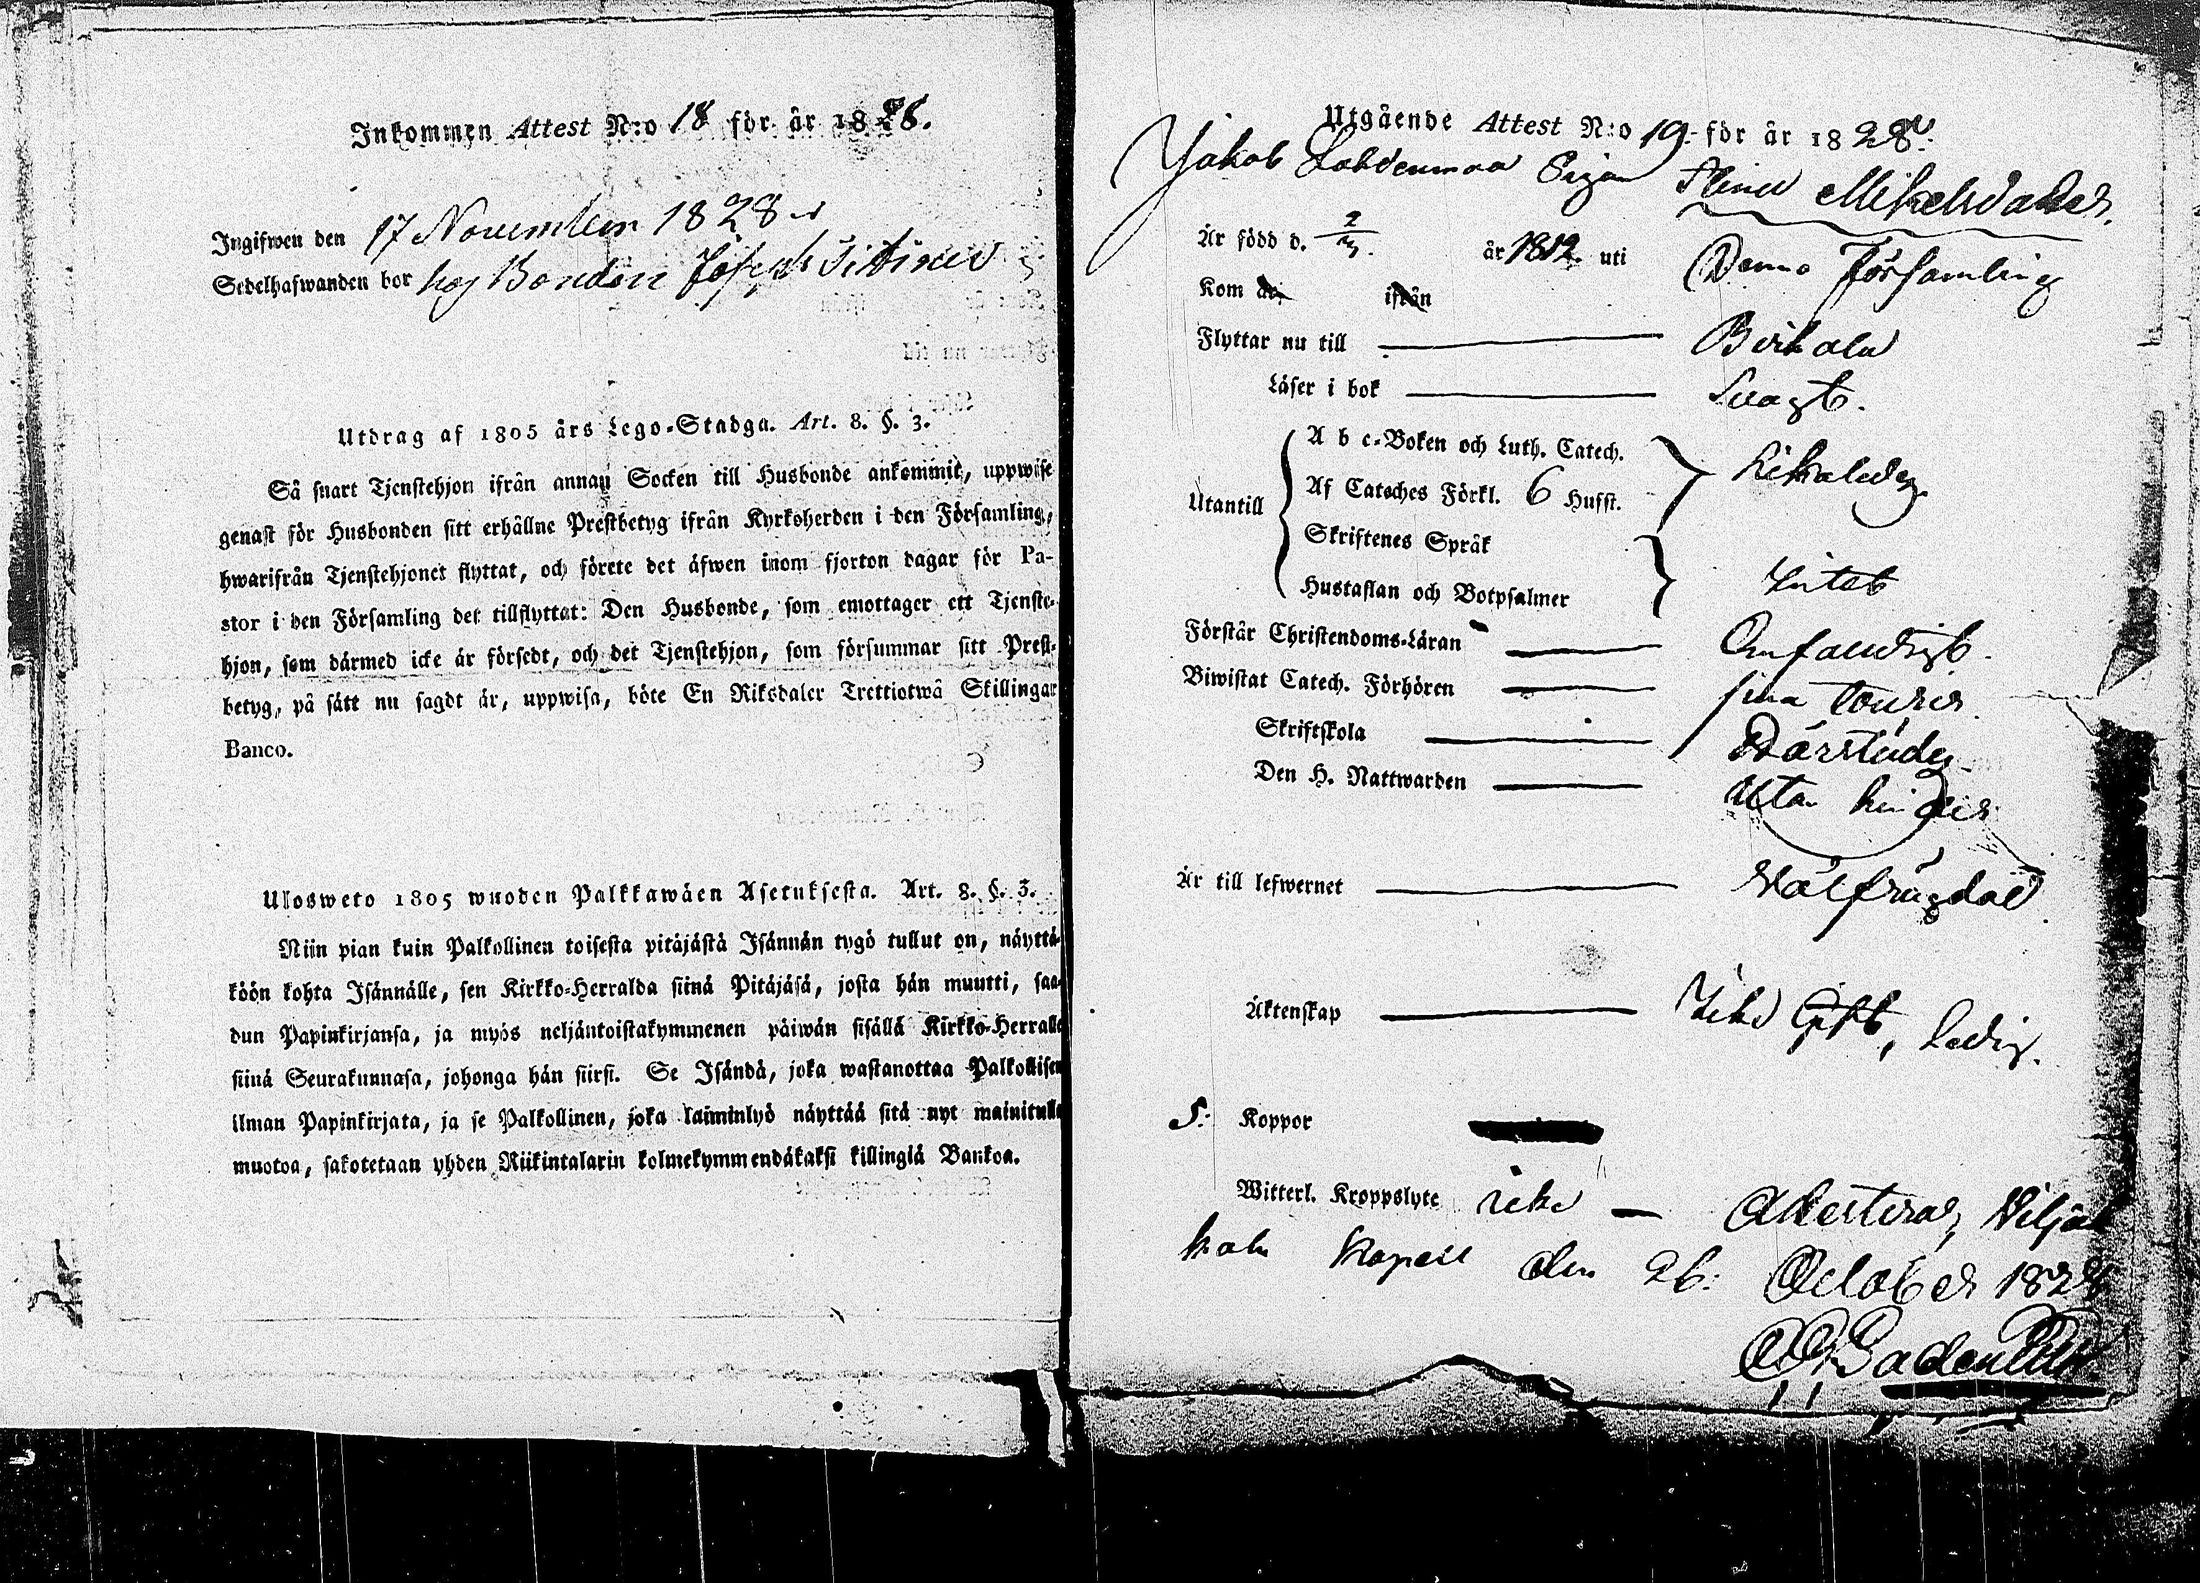 Inkommen Attest N:o 18 för år 1828.
Ingifwen den 17 November 1828
Sedelhafwanden bor hos Bonden Joseph
Utdrag af 1805 års Lego-Stadga. Art. 8. §. 3.
Så snart Tjenstehjon ifrån annan Socken till Husbonde ankommit, uppwise
genast för Husbonden sitt erhållne Prestbetyg ifrån Kyrkoherden i den Församling,
hwarifrån Tjenstehjonet flyttat, och förete det äfwen inom fjorton dagar för Pa-
stor i den Församling det tillflyttat: Den Husbonde, som emottager ett Tjenste-
hjon, som därmed icke är försedt, och det Tjenstehjon, som försummar sitt Prest-
betyg, på sätt nu sagdt är, uppwisa, böte En Riksdaler Trettiotwå Skillingar
Banco.
Ulosweto 1805 wuoden Palkkawäen Asetuksesta. Art. 8. §. 3.
Niin pian kuin Palkollinen toisesta pitäjästä Isännän tygö tullut on, näyttä-
köön kohta Isännälle, sen Kirkko-Herralda siinä Pitäjäsä, josta hän muutti, saa-
dun Papinkirjansa, ja myös neljäntoistakymmenen päiwän sisällä Kirkko-Herralle
siinä Seurakunnasa, johonga hän siirsi. Se Isändä, joka wastanottaa Palkollisen
ilman Papinkirjata, ja se Palkollinen, joka laiminlyö näyttää sitä nyt mainitulla
muotoa, sakotetaan yhden Riikintalarin kolmekymmendäkaksi killingiä Bankoa.
Utgående Attest N:o 19 för år 1828.
Jakob Lahdenmaa Pigan Stina Mikelsdotter.
Är född d. 2/3. år 1812 uti Denna Församling
Kom år ifrån
Flyttar nu till Birkala
Läser i bok Svagt.
Utantill
A b c-Boken och Luth. Catech.
Af Cateches Förkl. 6 Hufst. likaledes
Skriftenes Språk
Hustaflan och Botpsalmer Intet
Förstår Christendoms-Läran Enfaldigt.
Biwistat Catech. Förhören sina tourer
Skriftskola Därstädes
Den H. Nattwarden Utan hinder
Är till lefwernet Välfrägdad.
Äktenskap Icke Gift, ledig.
S: Koppor
Witterl. Kroppslyte icke — Attesteras, Viljak
kala Kapell den 26: October 1828